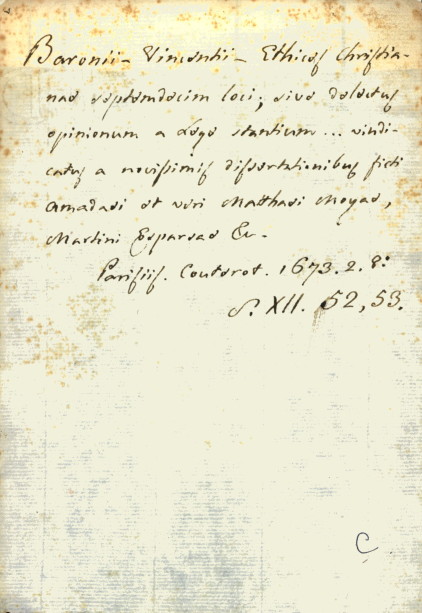 Baronii - Vincentii - Ethices Christia-
nae septemdecim loci; sive delectus
opinionum a Lege stantium... vindi-
catus a novissimis dissertationibus ficti
Amadaei et veri Matthaei Moyae,
Martini Esparsae &c.
Parisiis. Couterot. 1673. 2. 8:
S. XII. 52, 53.
C